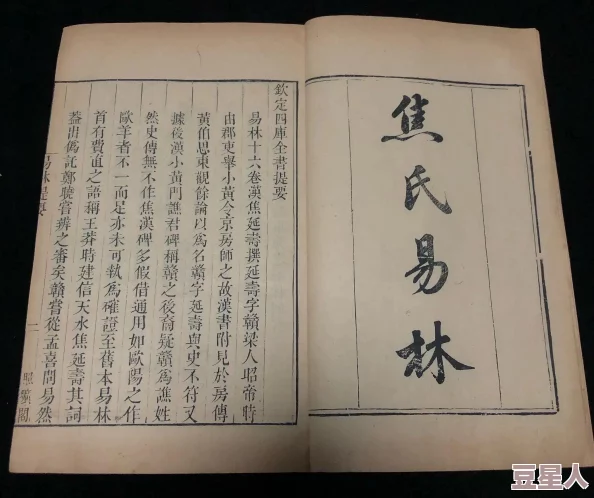 焦氏易林
欽定四庫全書提要
易林十六卷漢焦延壽撰延壽字贛梁人昭帝時
由郡吏舉小黃令京房師之故漢書附見於房傳
黃伯思東觀餘論以為名贛字延壽與史不符又
據後漢小黃門譙君碑稱贛之後裔疑贛為譙姓
然史傳無不作焦漢碑多假借通用如歐陽之作
歐羊者不一而足亦未可執為確證至舊本易林
首有費直之語稱王莽時建信天水焦延壽其詞
蓋出偽託鄭曉嘗辨之審矣贛嘗從孟喜問易然
易林提要
一
照曠閣
豆星人